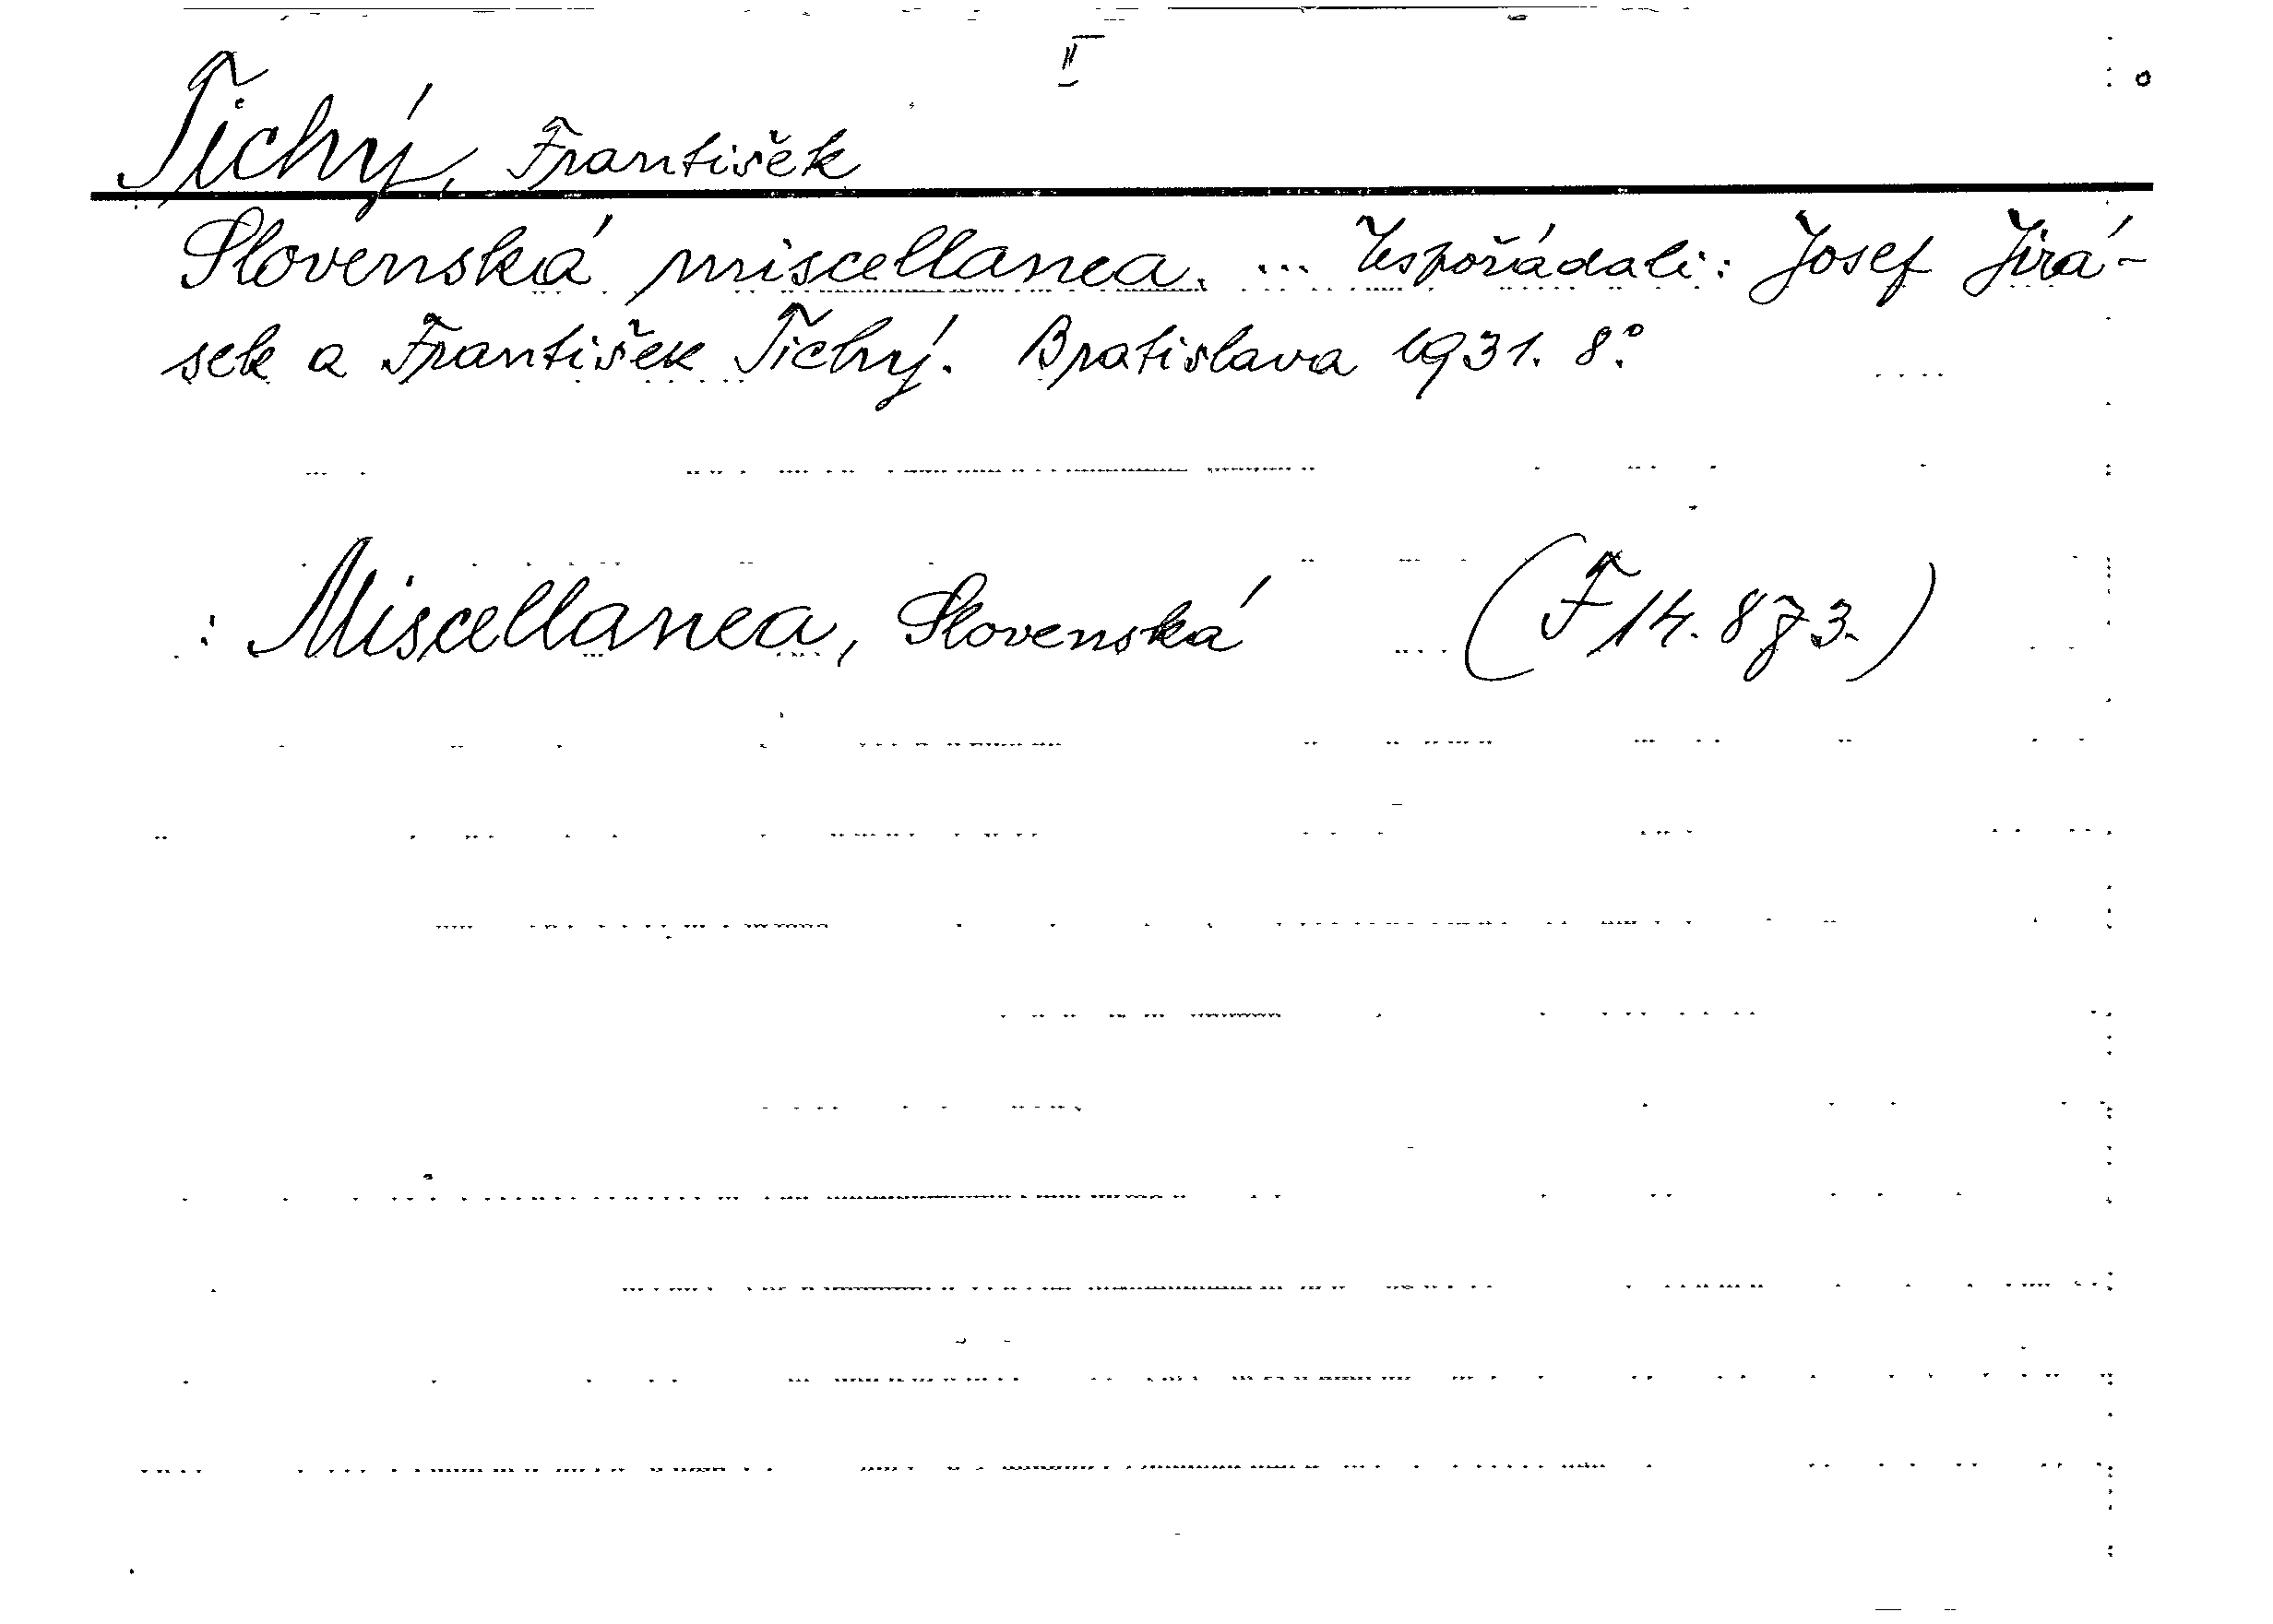 II
Tichý, František
Slovenská miscellanea. ... Uspořádali: Josef Jirá-
sek a František Tichý. Bratislava 1931. 8°.
: Miscellanea, Slovenská (F 14.873.)